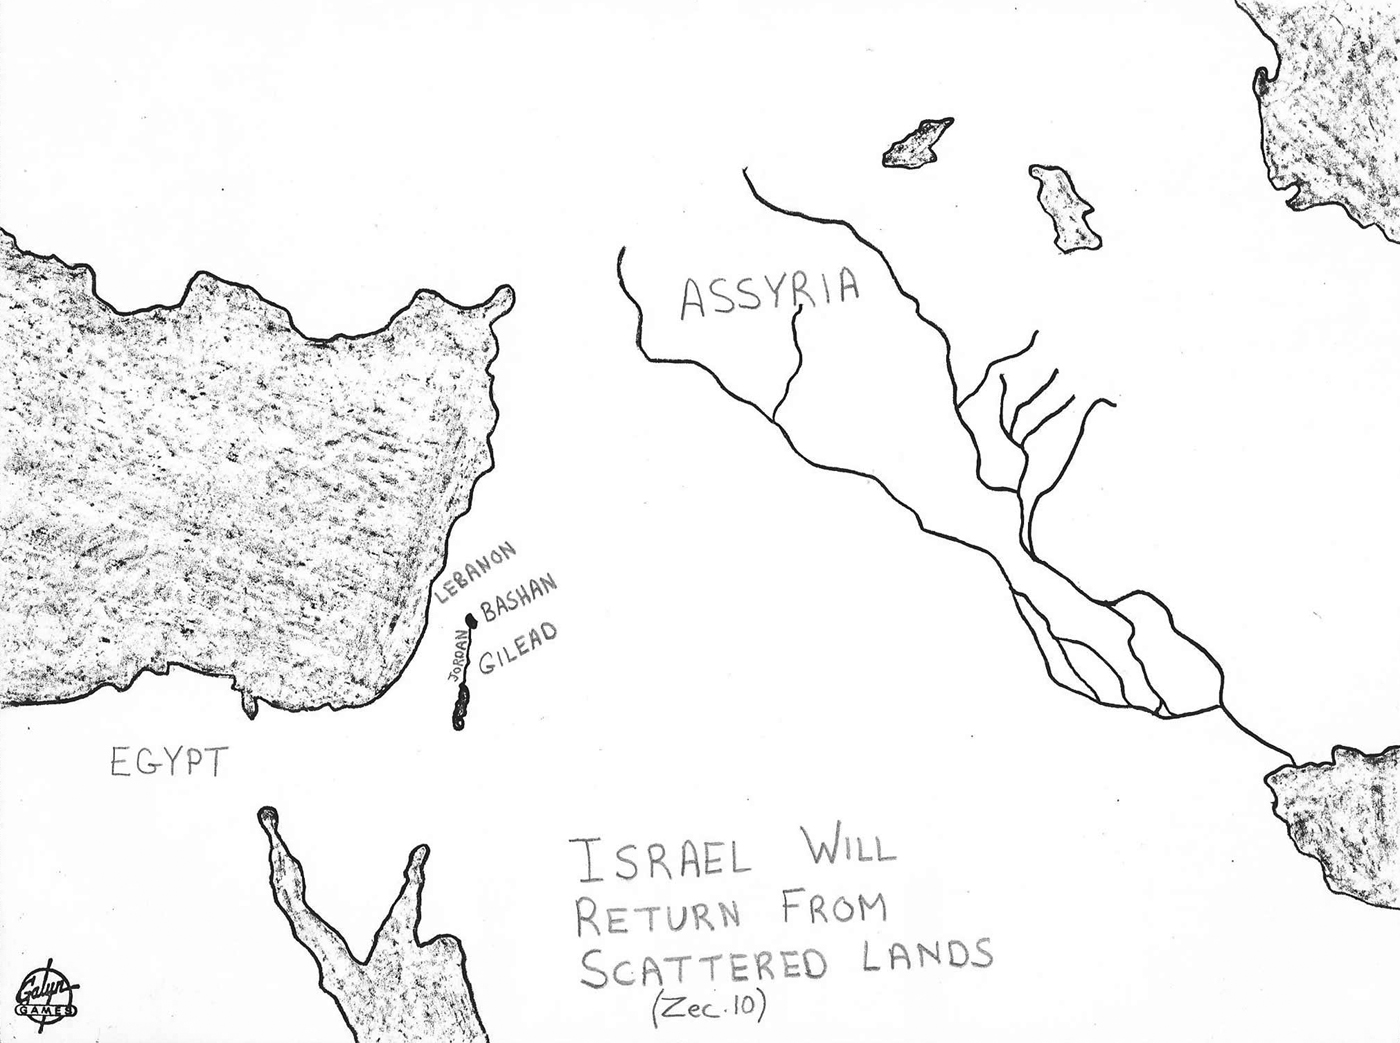 ASSYRIA
LEBANON
BASHAN
JORDAN
GILEAD
EGYPT
ISRAEL WILL
RETURN FROM
SCATTERED LANDS
(Zec. 10)
Galyn
GAMES